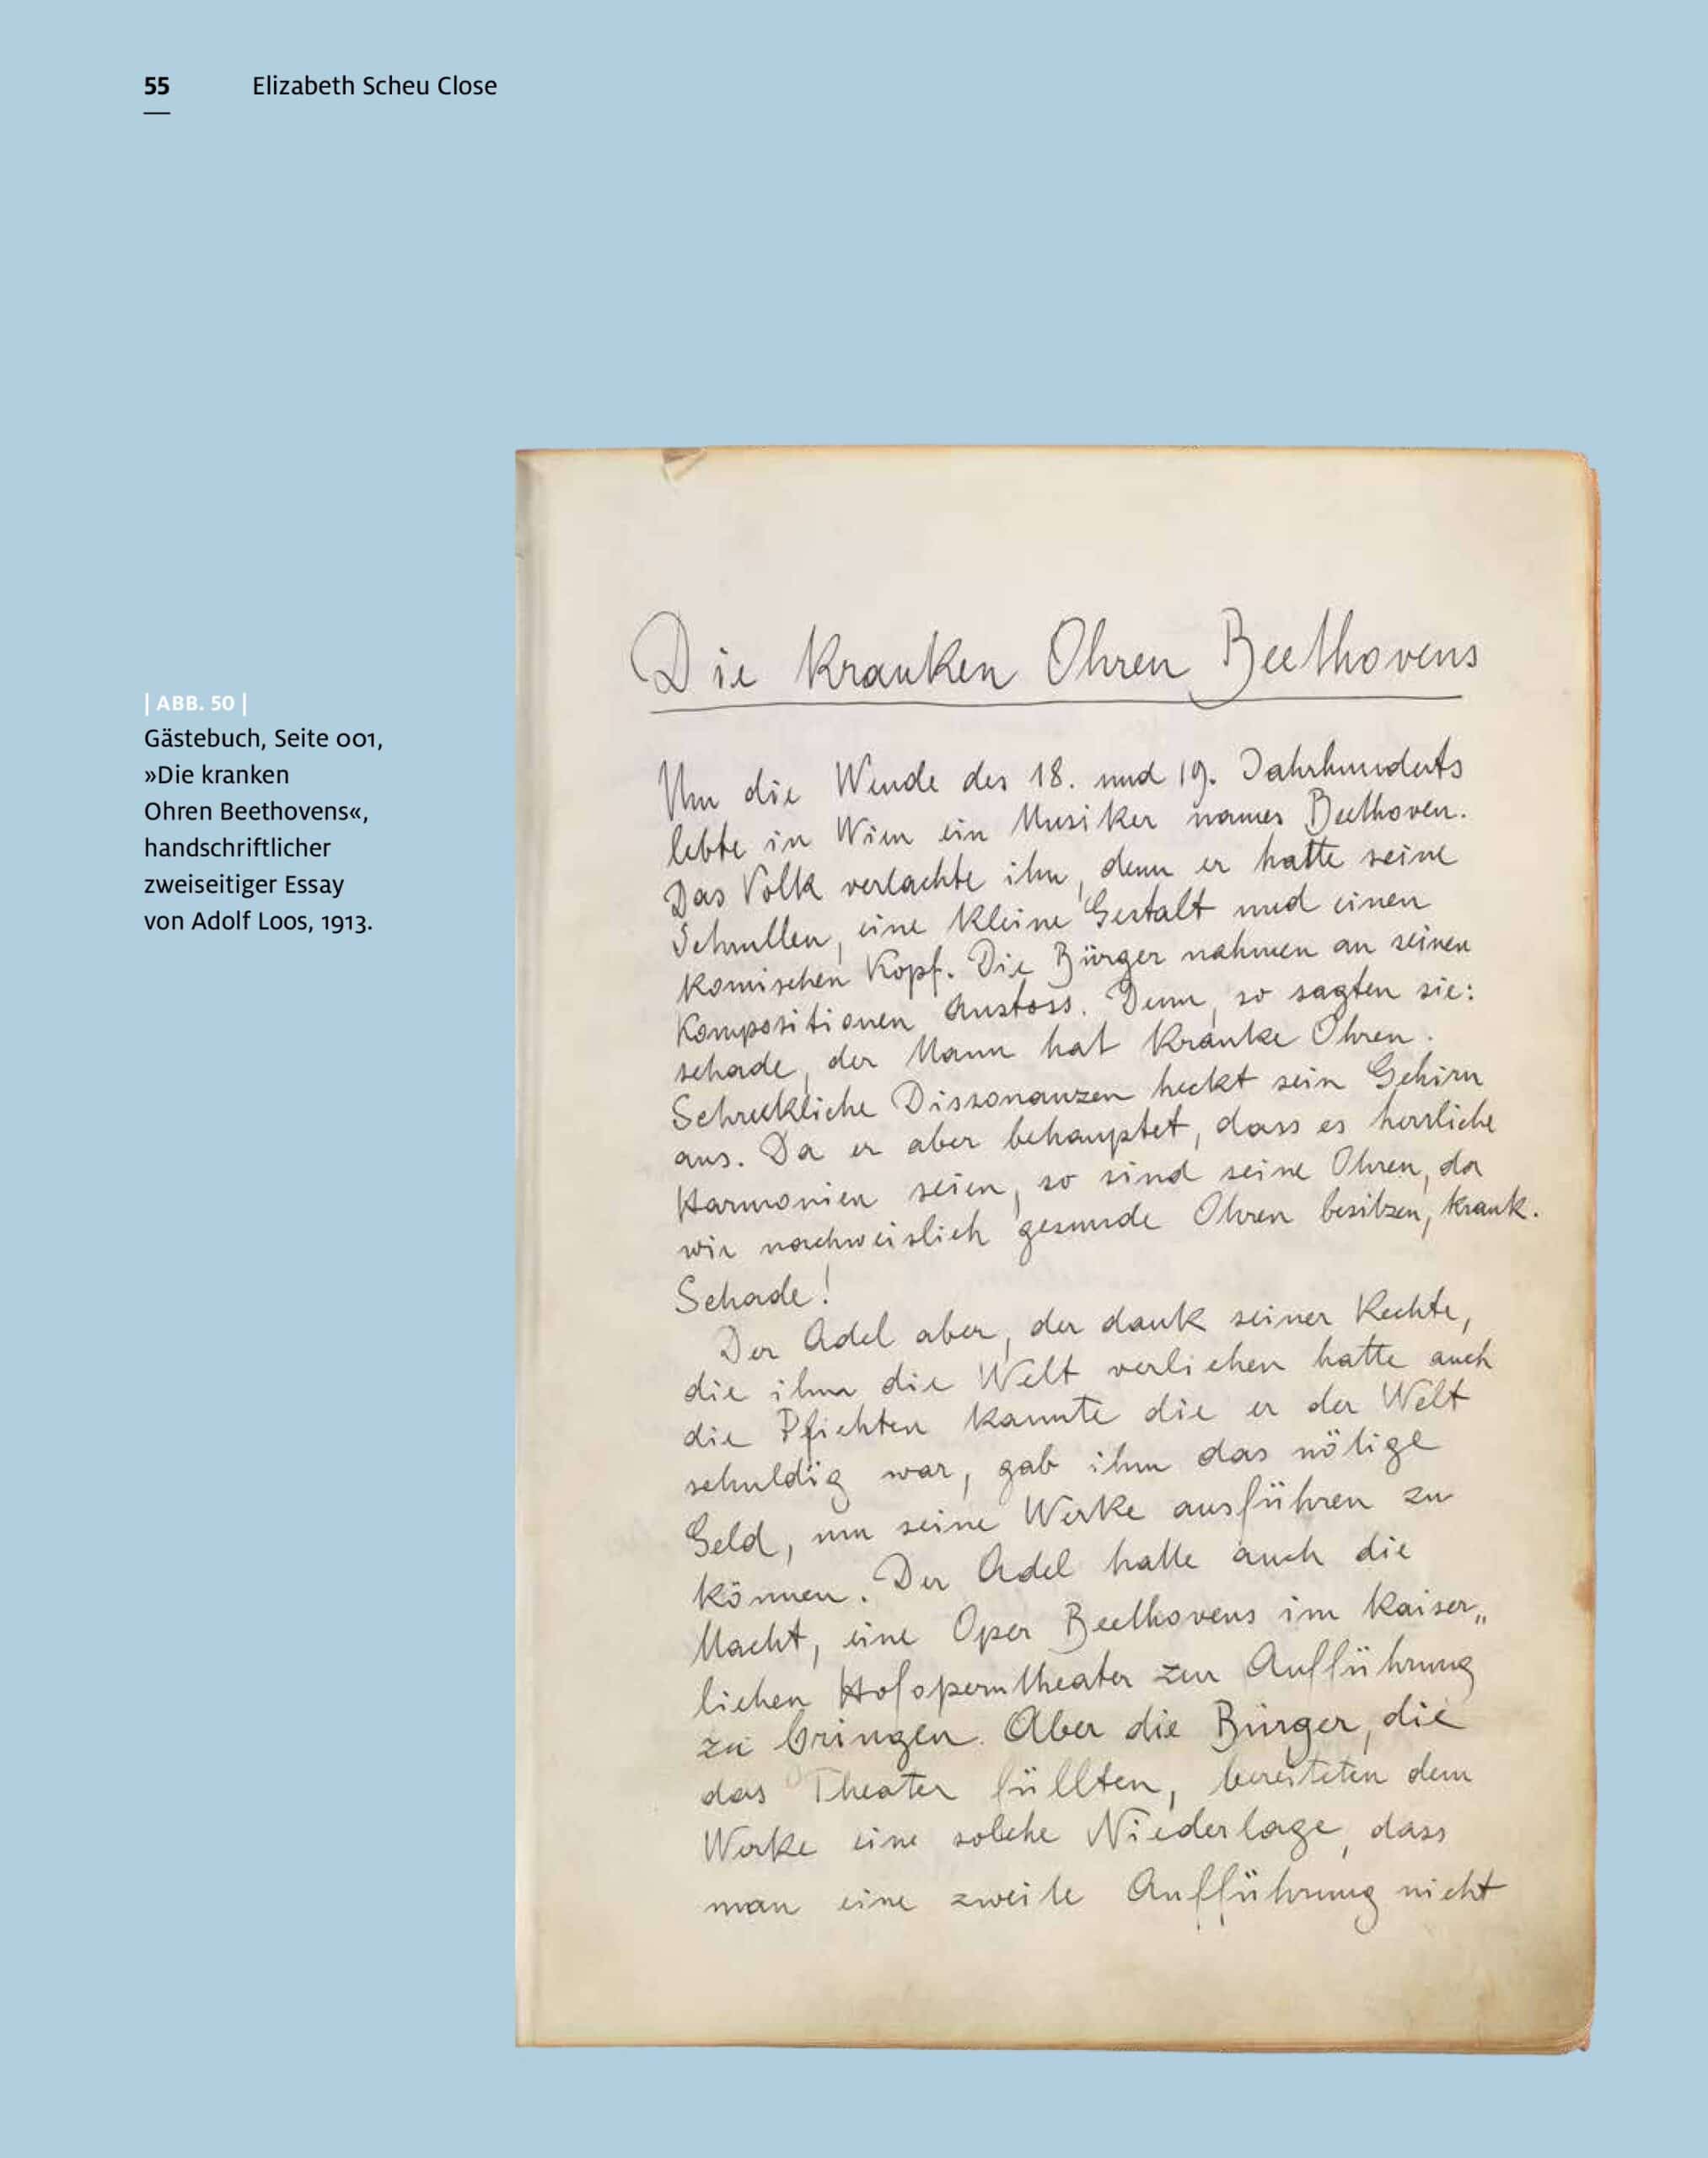 55 Elizabeth Scheu Close
| ABB. 50 |
Gästebuch, Seite 001,
»Die kranken
Ohren Beethovens«,
handschriftlicher
zweiseitiger Essay
von Adolf Loos, 1913.
Die Kranken Ohren Beethovens
Um die Wende des 18. und 19. Jahrhunderts
lebte in Wien ein Musiker names Beethoven.
Das Volk verlachte ihn, denn er hatte seine
Schrullen, eine kleine Gestalt und einen
komischen Kopf. Die Bürger nahmen an seinen
Kompositionen Anstoss. Denn, so sagten sie:
schade, der Mann hat kranke Ohren.
Schreckliche Dissonanzen heckt sein Gehirn
aus. Da er aber behauptet, dass es herrliche
Harmonien seien, so sind seine Ohren, da
wir nachweislich gesunde Ohren besitzen, krank.
Schade!
Der Adel aber, der dank seiner Rechte,
die ihm die Welt verliehen hatte auch
die Pfichten kannte die er der Welt
schuldig war, gab ihm das nötige
Geld, um seine Werke ausführen zu
können. Der Adel hatte auch die
Macht, eine Oper Beethovens im kaiser„
lichen Hofoperntheater zur Aufführung
zu bringen. Aber die Bürger, die
das Theater füllten, bereiteten dem
Werke eine solche Niederlage, dass
man eine zweite Aufführung nicht